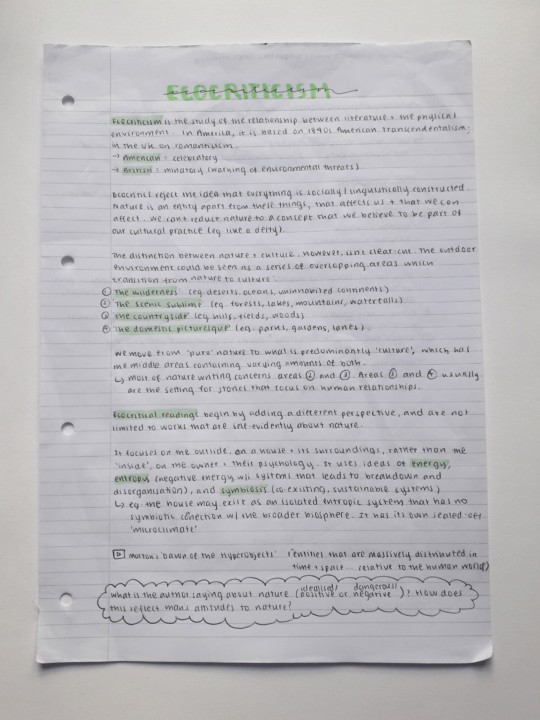 ECOCRITICISM
Ecocriticism is the study of the relationship between literature + the physical
environment. In America, it is based on 1840s American transcendentalism;
in the UK on romanticism.
→ American = celebratory
→ British = minatory (warning of environmental threats)
Ecocritics reject the idea that everything is socially / linguistically constructed.
Nature is an entity apart from these things, that affects us + that we can
affect. We can't reduce nature to a concept that we believe to be part of
our cultural practice (eg. like a deity).
The distinction between nature + culture, however, isn't clear-cut. The outdoor
environment could be seen as a series of overlapping areas which
transition from nature to culture:
① 'The wilderness' (eg. deserts, oceans, uninhabited continents)
② 'The scenic sublime' (eg. forests, lakes, mountains, waterfalls)
③ 'The countryside' (eg. hills, fields, woods)
④ 'The domestic picturesque' (eg. parks, gardens, lanes)
We move from 'pure' nature to what is predominantly 'culture', which has
the middle areas containing varying amounts of both.
↳ most of nature writing concerns areas ② and ③. Areas and ④ usually
are the setting for stories that focus on human relationships.
Ecocritical readings begin by adding a different perspective, and are not
limited to works that are evidently about nature.
It focuses on the outside, on a house + its surroundings, rather than the
'inside', on the owner + their psychology. It uses ideas of energy,
entropy (negative energy w/i systems that leads to breakdown and
disorganisation), and symbiosis (co-existing, sustainable systems)
↳ eg. the house may exist as an isolated entropic system that has no
symbiotic conection w/ the broader biosphere. It has its own sealed-off
'microclimate'
Morton's 'Dawn of the Hyperobjects' ('entities that are massively distributed in
time + space... relative to the human world')
idealised/ dangerous/
What is the author saying about nature (positive or negative)? How does
this reflect mans attitudes to nature?